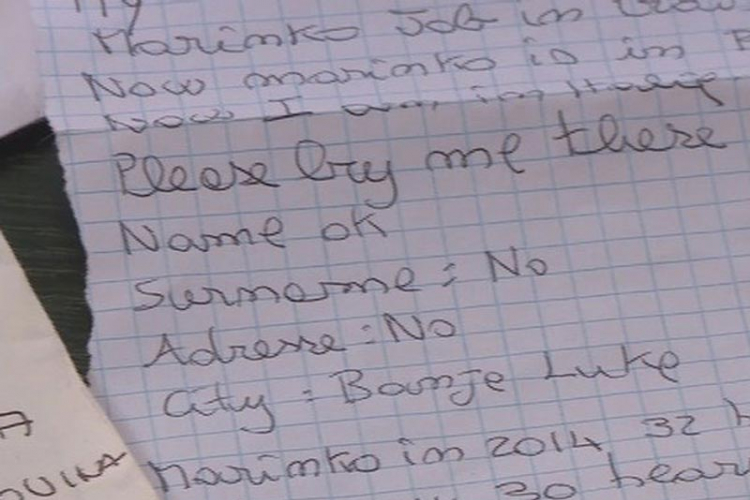 Marinko Job in
Now marinko is in
Now I am in
Please try me there
Name ok
Surname : No
Adresse : No
City : Banje Luke
Marinko in 2014 32
30 bear